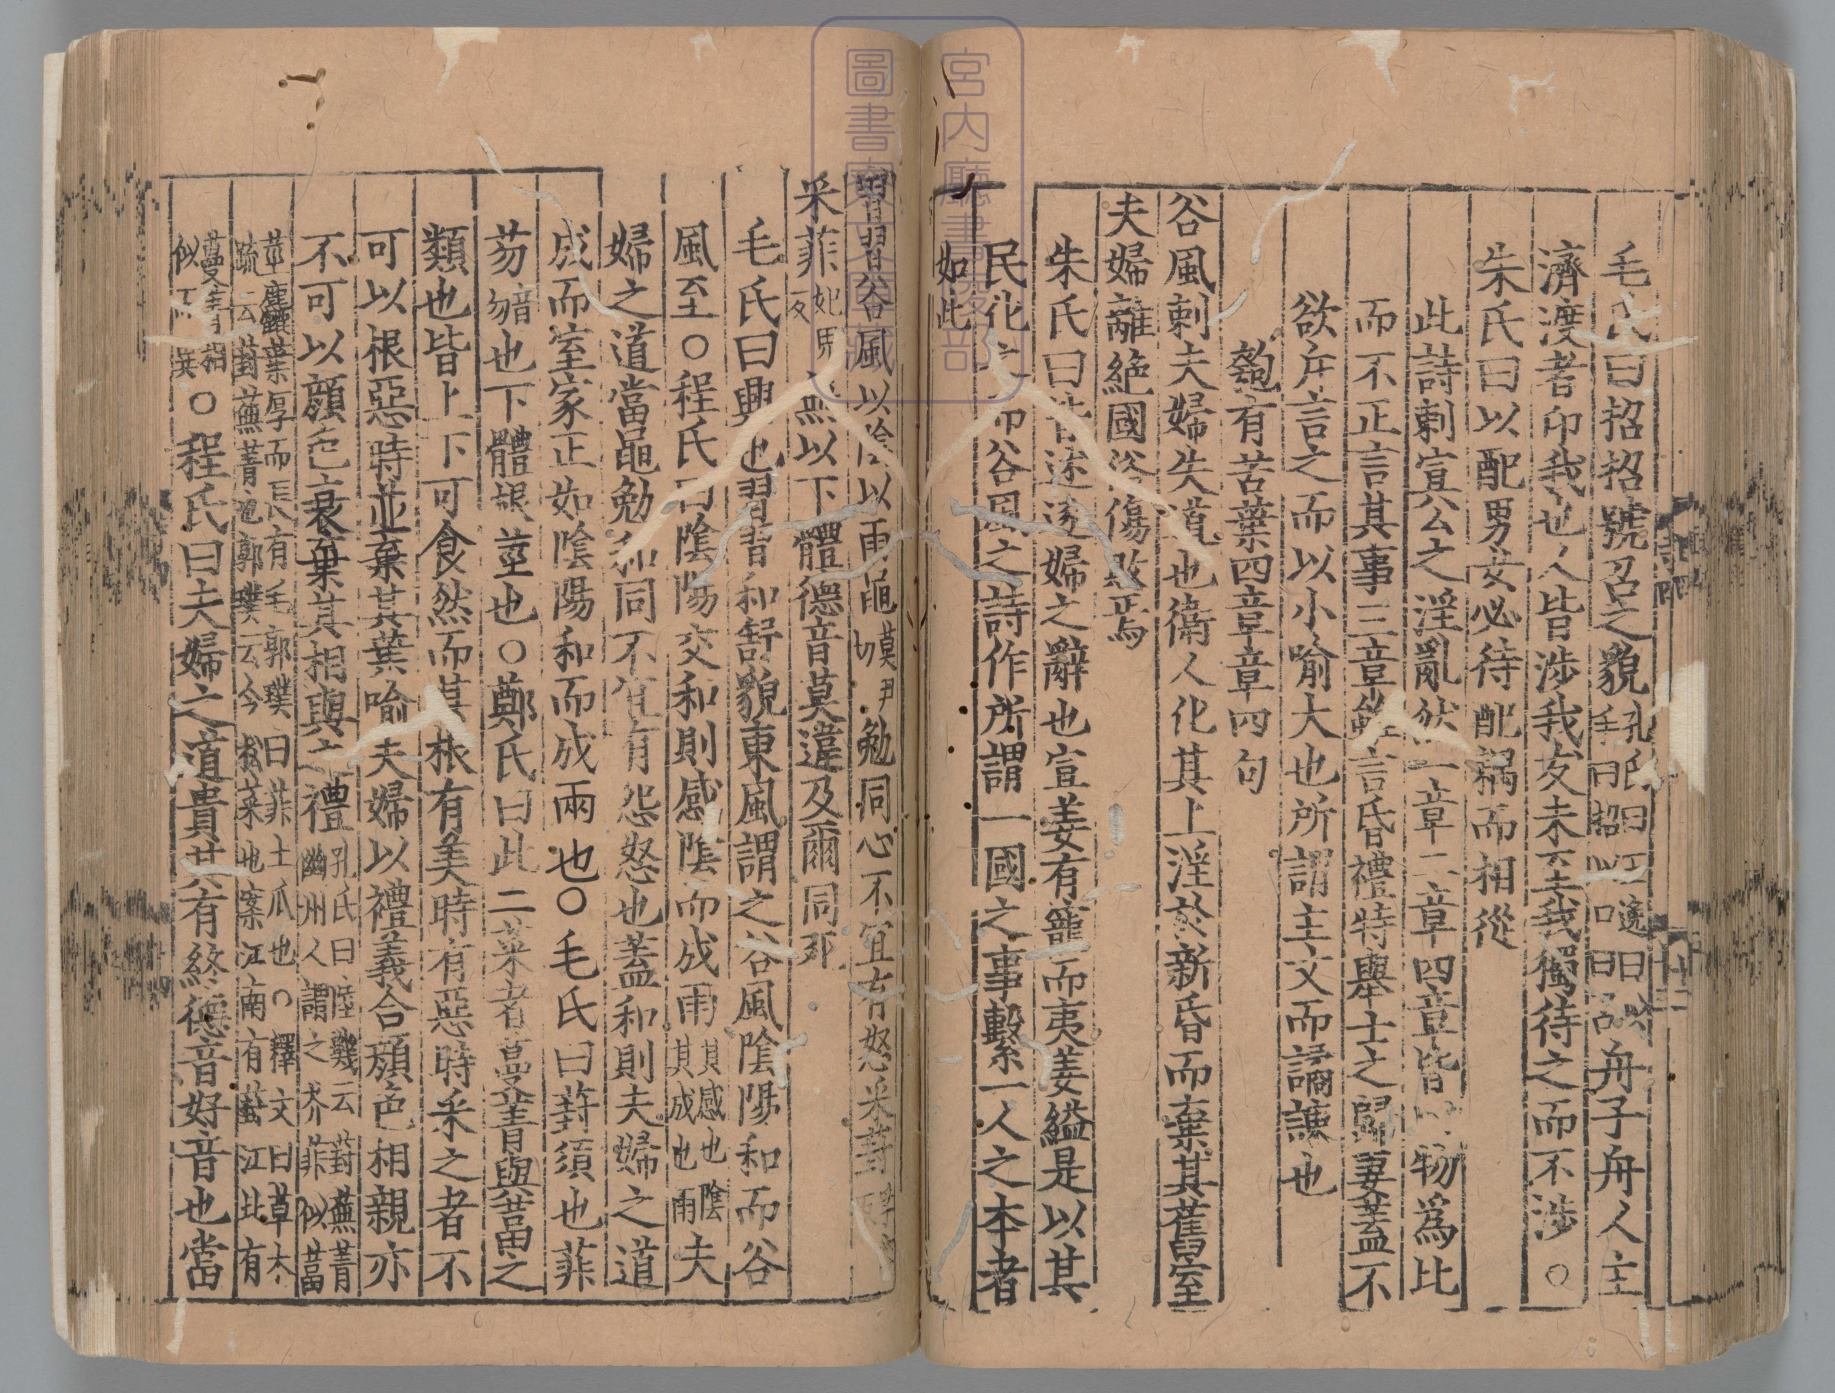 毛氏曰招招號召之貌孔氏曰王逸曰以手曰招以口曰召舟子舟人主
濟渡者卬我也人皆涉我友未至我獨待之而不涉○
朱氏曰以配男女必待配耦而相從
此詩刺宣公之淫亂然一章二章四章皆以物為比
而不正言其事三章雖言昏禮特舉士之歸妻蓋不
欲斥言之而以小喻大也所謂主文而譎諫也
匏有苦葉四章章四句
谷風刺夫婦失道也衛人化其上淫於新昏而棄其舊室
夫婦離絶國俗傷敗焉
朱氏曰皆述逐婦之辭也宣姜有寵而夷姜縊是以其
民化之而谷風之詩作所謂一國之事繫一人之本者
如此
習習谷風以陰以雨黽莫尹切勉同心不宜有怒采葑
采菲妃鬼反無以下體德音莫違及爾同死
毛氏曰興也習習和舒貌東風謂之谷風陰陽和而谷
風至○程氏曰陰陽交和則感陰而成雨其感也陰其成也雨夫
婦之道當黽勉和同不宜有怨怒也蓋和則夫婦之道
成而室家正如陰陽和而成雨也○毛氏曰葑須也菲
芴音勿也下體根莖也○鄭氏曰此二菜者蔓菁與葍之
類也皆上下可食然而其根有美時有惡時采之者不
可以根惡時並棄其葉喻夫婦以禮義合顔色相親亦
不可以顔色衰棄其相與之禮孔氏曰陸璣云葑蕪菁幽州人謂之芥菲似葍
莖麤葉厚而長有毛郭璞曰菲土瓜也○釋文曰草木疏云葑蕪菁也郭璞云今菘菜也案江南有菘江北有
蔓菁相似而異○程氏曰夫婦之道貴其有終德音好音也當
宮内廳書陵部
圖書寮文庫